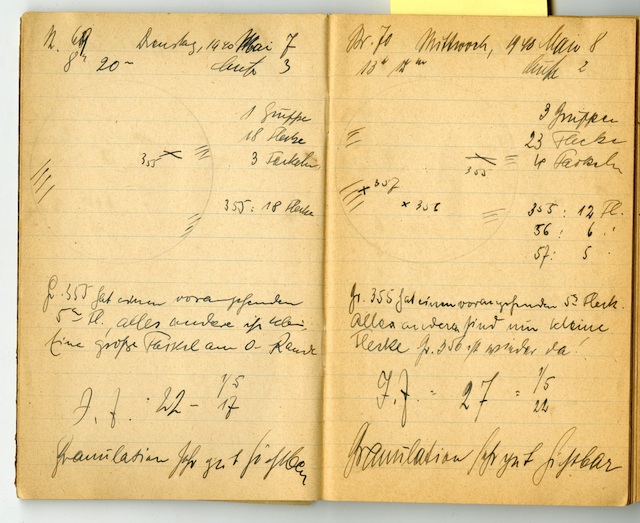 N. 69 Dienstag, 1940 Mai 7
8h 20m Luft 3
1 Gruppe
18 Flecke
3 Fackeln
355
355: 18 Flecke
Gr. 355 hat einen vorangehenden
5m Fl. alles andere ist klein.
Eine große Fackel am O-Rande
F. f. 22 - 1/5
17
Granulation sehr gut sichtbar
Nr. 70 Mittwoch, 1940 Mai 8
13h Luft 2
3 Gruppen
23 Flecke
4 Fackeln
355
357
356
355: 12 Fl.
56: 6 "
57: 5 "
Gr. 355 hat einen vorangehenden 5m Fleck.
Alles andere sind nur kleine
Flecke Gr. 356 ist wieder da!
F. f. = 27 = 1/5
22
Granulation sehr gut sichtbar